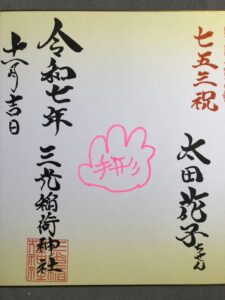 七五三祝
太田花子ちゃん
手形
令和七年
三光稲荷神社
十一月吉日